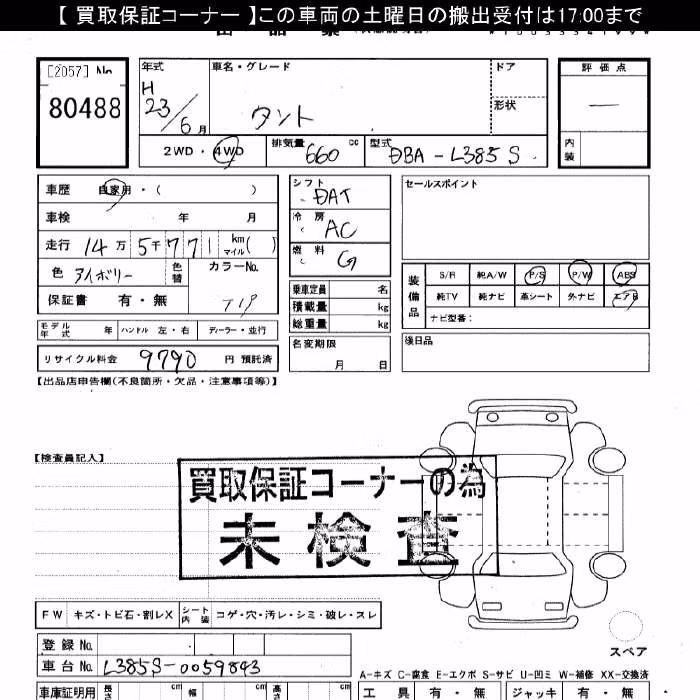 【 買取保証コーナー 】この車両の土曜日の搬出受付は17:00まで
[2057] No
80488
年式
H
23/6月
車名・グレード
タント
ドア
形状
評価点
—
内装
2WD・4WD
排気量 660 cc
型式 DBA - L385S
車歴 自家用・( )
車検 年 月
走行 14万5千771 km マイル( )
色 アイボリー 色替
カラーNo. T19
保証書 有・無
モデル年式 年 ハンドル 左・右 ディーラー・並行
リサイクル料金 9790 円 預託済
シフト DAT
冷房 AC
燃料 G
乗車定員 名
積載量 kg
総重量 kg
名変期限
月 日
セールスポイント
装備品
S/R 純A/W P/S P/W ABS
純TV 純ナビ 革シート 外ナビ エアB
ナビ型番:
後日品
【出品店申告欄(不良箇所・欠品・注意事項等)】
【検査員記入】
買取保証コーナーの為
未検査
FW キズ・トビ石・割レX シート内装 コゲ・穴・汚レ・シミ・破レ・スレ
登録 No.
車台 No. L385S-0059843
スペア
A-キズ C-腐食 E-エクボ S-サビ U-凹ミ W-補修 XX-交換済
車庫証明用 長さ cm 幅 cm 高さ cm
工具 有・無 ジャッキ 有・無